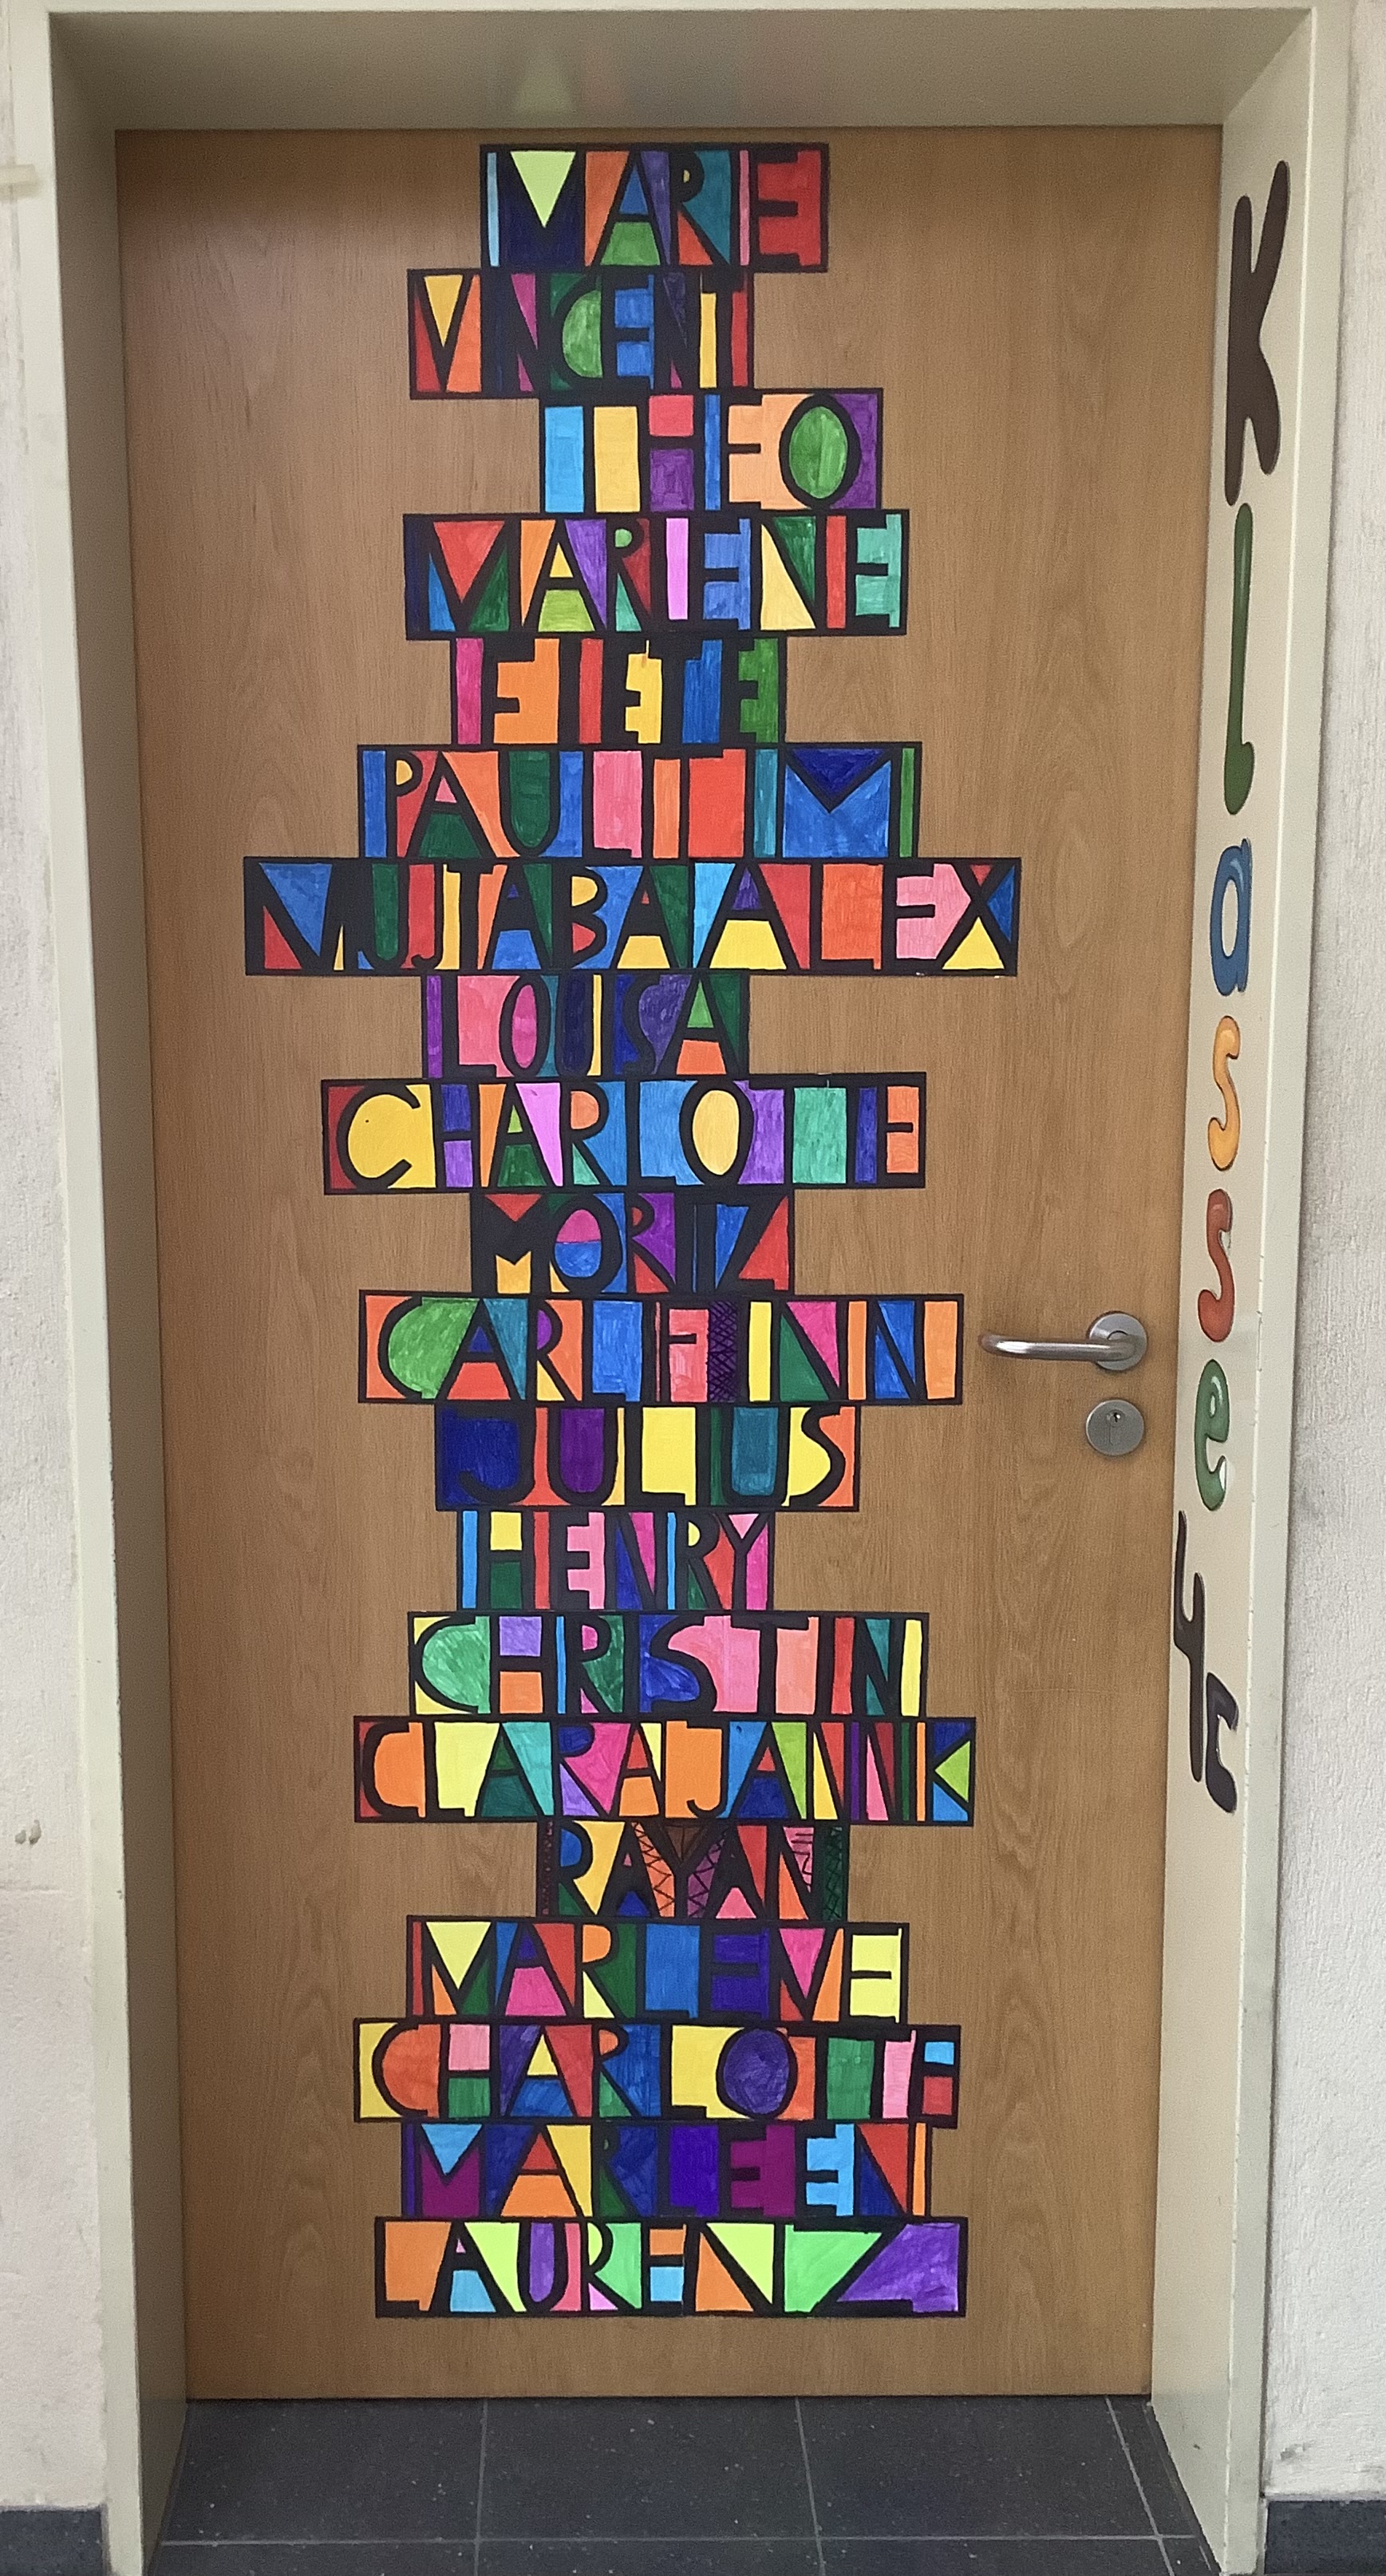 MARIE
VINCENT
THEO
MARLENE
FIETE
PAUL TIM
MUJTABA ALEX
LOUISA
CHARLOTTE
MORITZ
CARL FINN
JULIUS
HENRY
CHRISTIN
CLARA JANNIK
RAYAN
MARLENE
CHARLOTTE
MARLEEN
LAURENZ
Klasse 4c